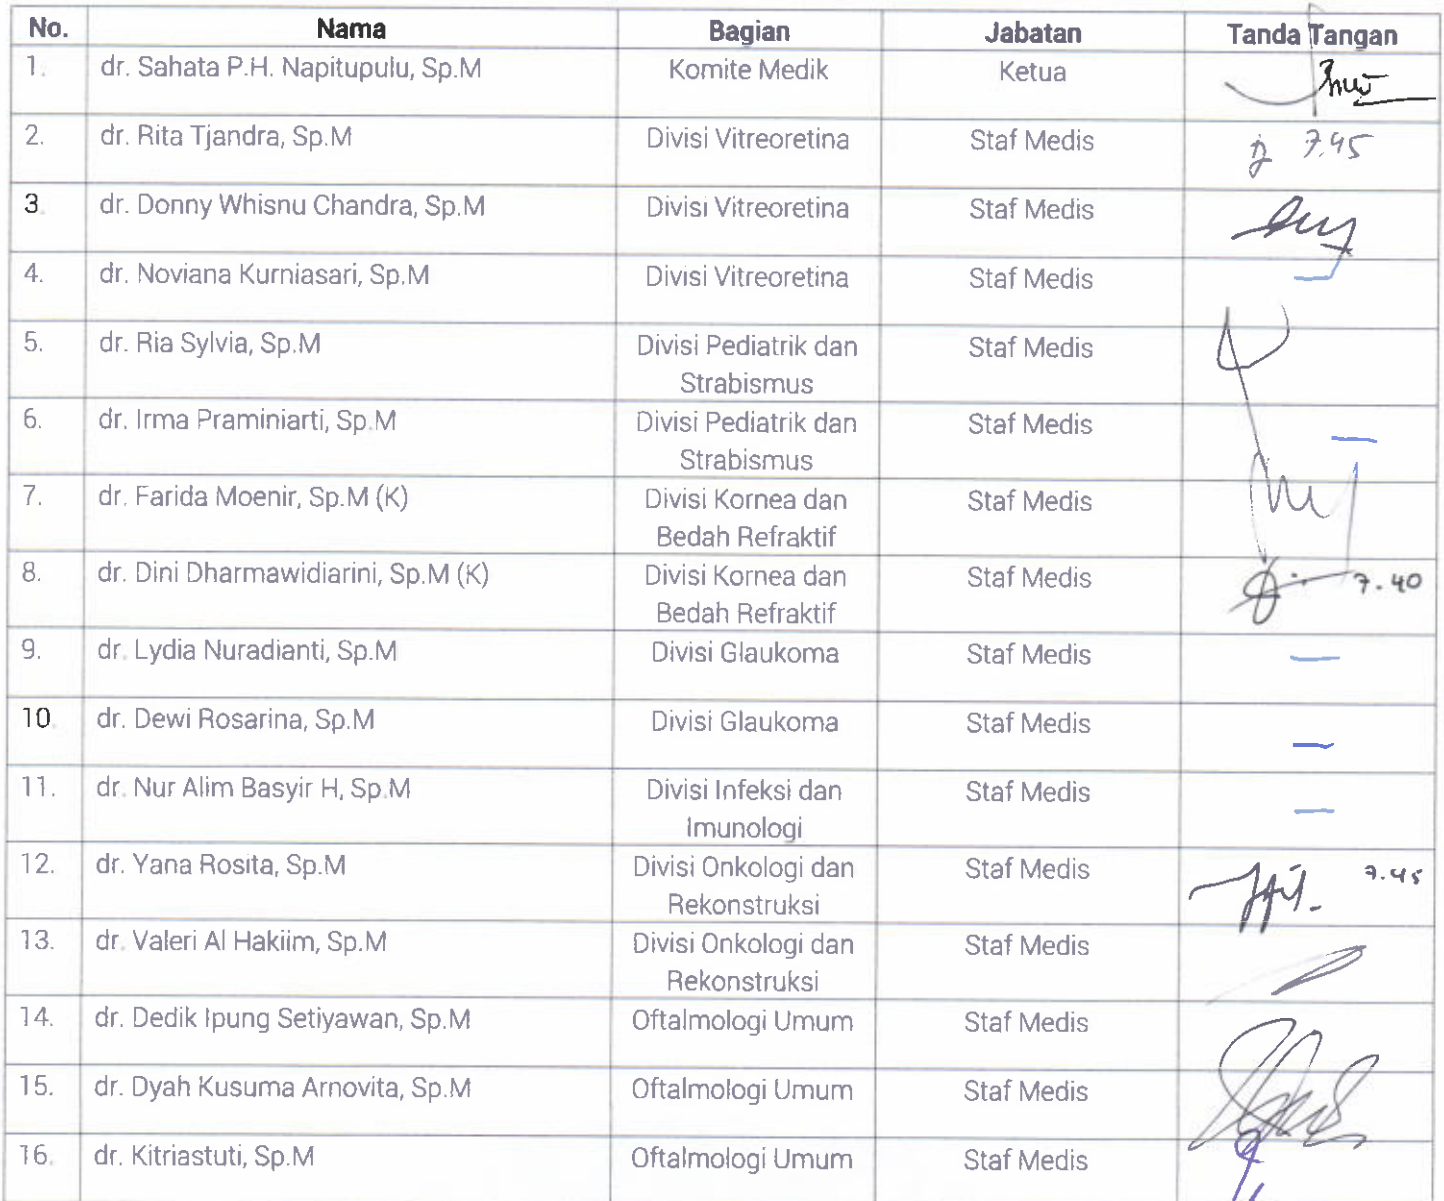 No. Nama Bagian Jabatan Tanda Tangan
1. dr. Sahata P.H. Napitupulu, Sp.M Komite Medik Ketua
2. dr. Rita Tjandra, Sp.M Divisi Vitreoretina Staf Medis 7.45
3. dr. Donny Whisnu Chandra, Sp.M Divisi Vitreoretina Staf Medis
4. dr. Noviana Kurniasari, Sp.M Divisi Vitreoretina Staf Medis
5. dr. Ria Sylvia, Sp.M Divisi Pediatrik dan Staf Medis
Strabismus
6. dr. Irma Praminiarti, Sp.M Divisi Pediatrik dan Staf Medis
Strabismus
7. dr. Farida Moenir, Sp.M (K) Divisi Kornea dan Staf Medis
Bedah Refraktif
8. dr. Dini Dharmawidiarini, Sp.M (K) Divisi Kornea dan Staf Medis 7.40
Bedah Refraktif
9. dr. Lydia Nuradianti, Sp.M Divisi Glaukoma Staf Medis
10. dr. Dewi Rosarina, Sp.M Divisi Glaukoma Staf Medis
11. dr. Nur Alim Basyir H, Sp.M Divisi Infeksi dan Staf Medis
Imunologi
12. dr. Yana Rosita, Sp.M Divisi Onkologi dan Staf Medis 7.45
Rekonstruksi
13. dr. Valeri Al Hakiim, Sp.M Divisi Onkologi dan Staf Medis
Rekonstruksi
14. dr. Dedik Ipung Setiyawan, Sp.M Oftalmologi Umum Staf Medis
15. dr. Dyah Kusuma Arnovita, Sp.M Oftalmologi Umum Staf Medis
16. dr. Kitriastuti, Sp.M Oftalmologi Umum Staf Medis